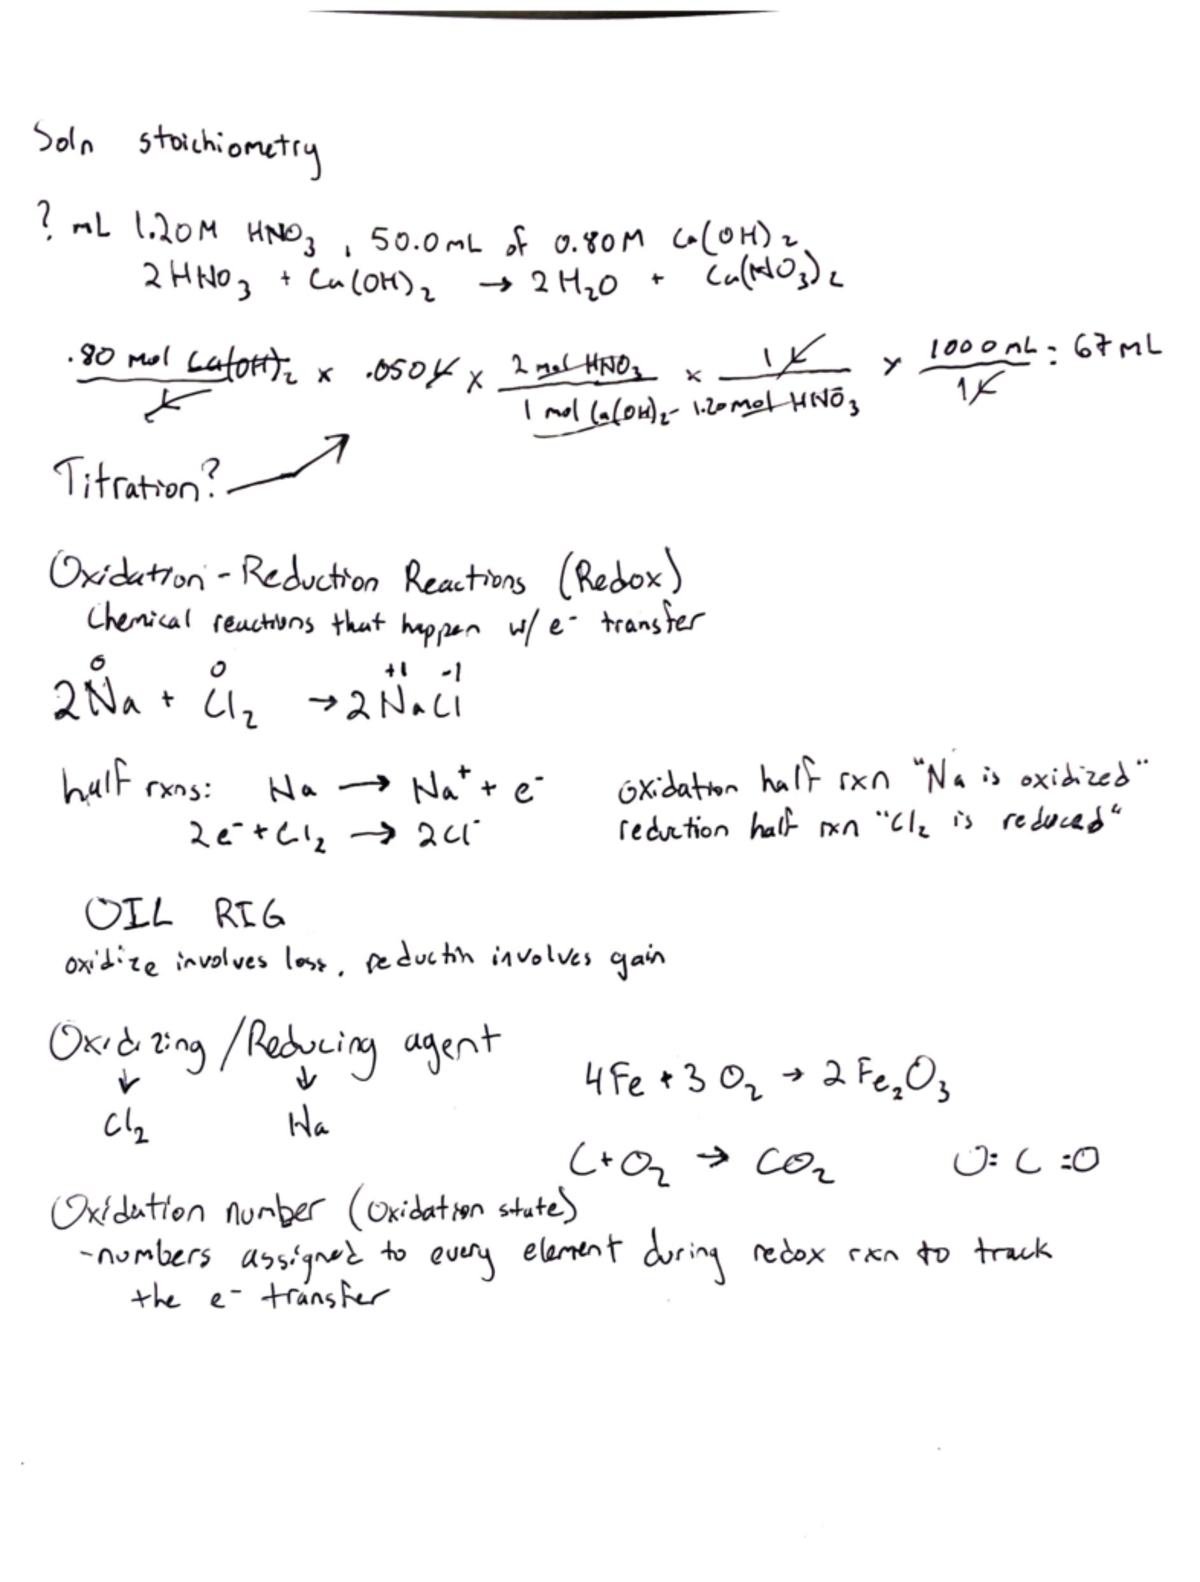 Soln stoichiometry
? mL 1.20M HNO₃, 50.0mL of 0.80M Ca(OH)₂
2HNO₃ + Ca(OH)₂ → 2H₂O + Ca(NO₃)₂
.80 mol Ca(OH)₂ / L × .050L × 2 mol HNO₃ / 1 mol Ca(OH)₂ × 1L / 1.20mol HNO₃ × 1000mL / 1L = 67mL
Titration?
Oxidation-Reduction Reactions (Redox)
Chemical reactions that happen w/ e⁻ transfer
0 0 +1 -1
2Na + Cl₂ → 2NaCl
half rxns: Na → Na⁺ + e⁻ oxidation half rxn "Na is oxidized"
2e⁻ + Cl₂ → 2Cl⁻ reduction half rxn "Cl₂ is reduced"
OIL RIG
oxidize involves loss, reductin involves gain
Oxidizing /Reducing agent
↓ ↓
Cl₂ Na
4Fe + 3O₂ → 2Fe₂O₃
C+O₂ → CO₂ O=C=O
Oxidation number (oxidation state)
-numbers assigned to every element during redox rxn to track
the e⁻ transfer